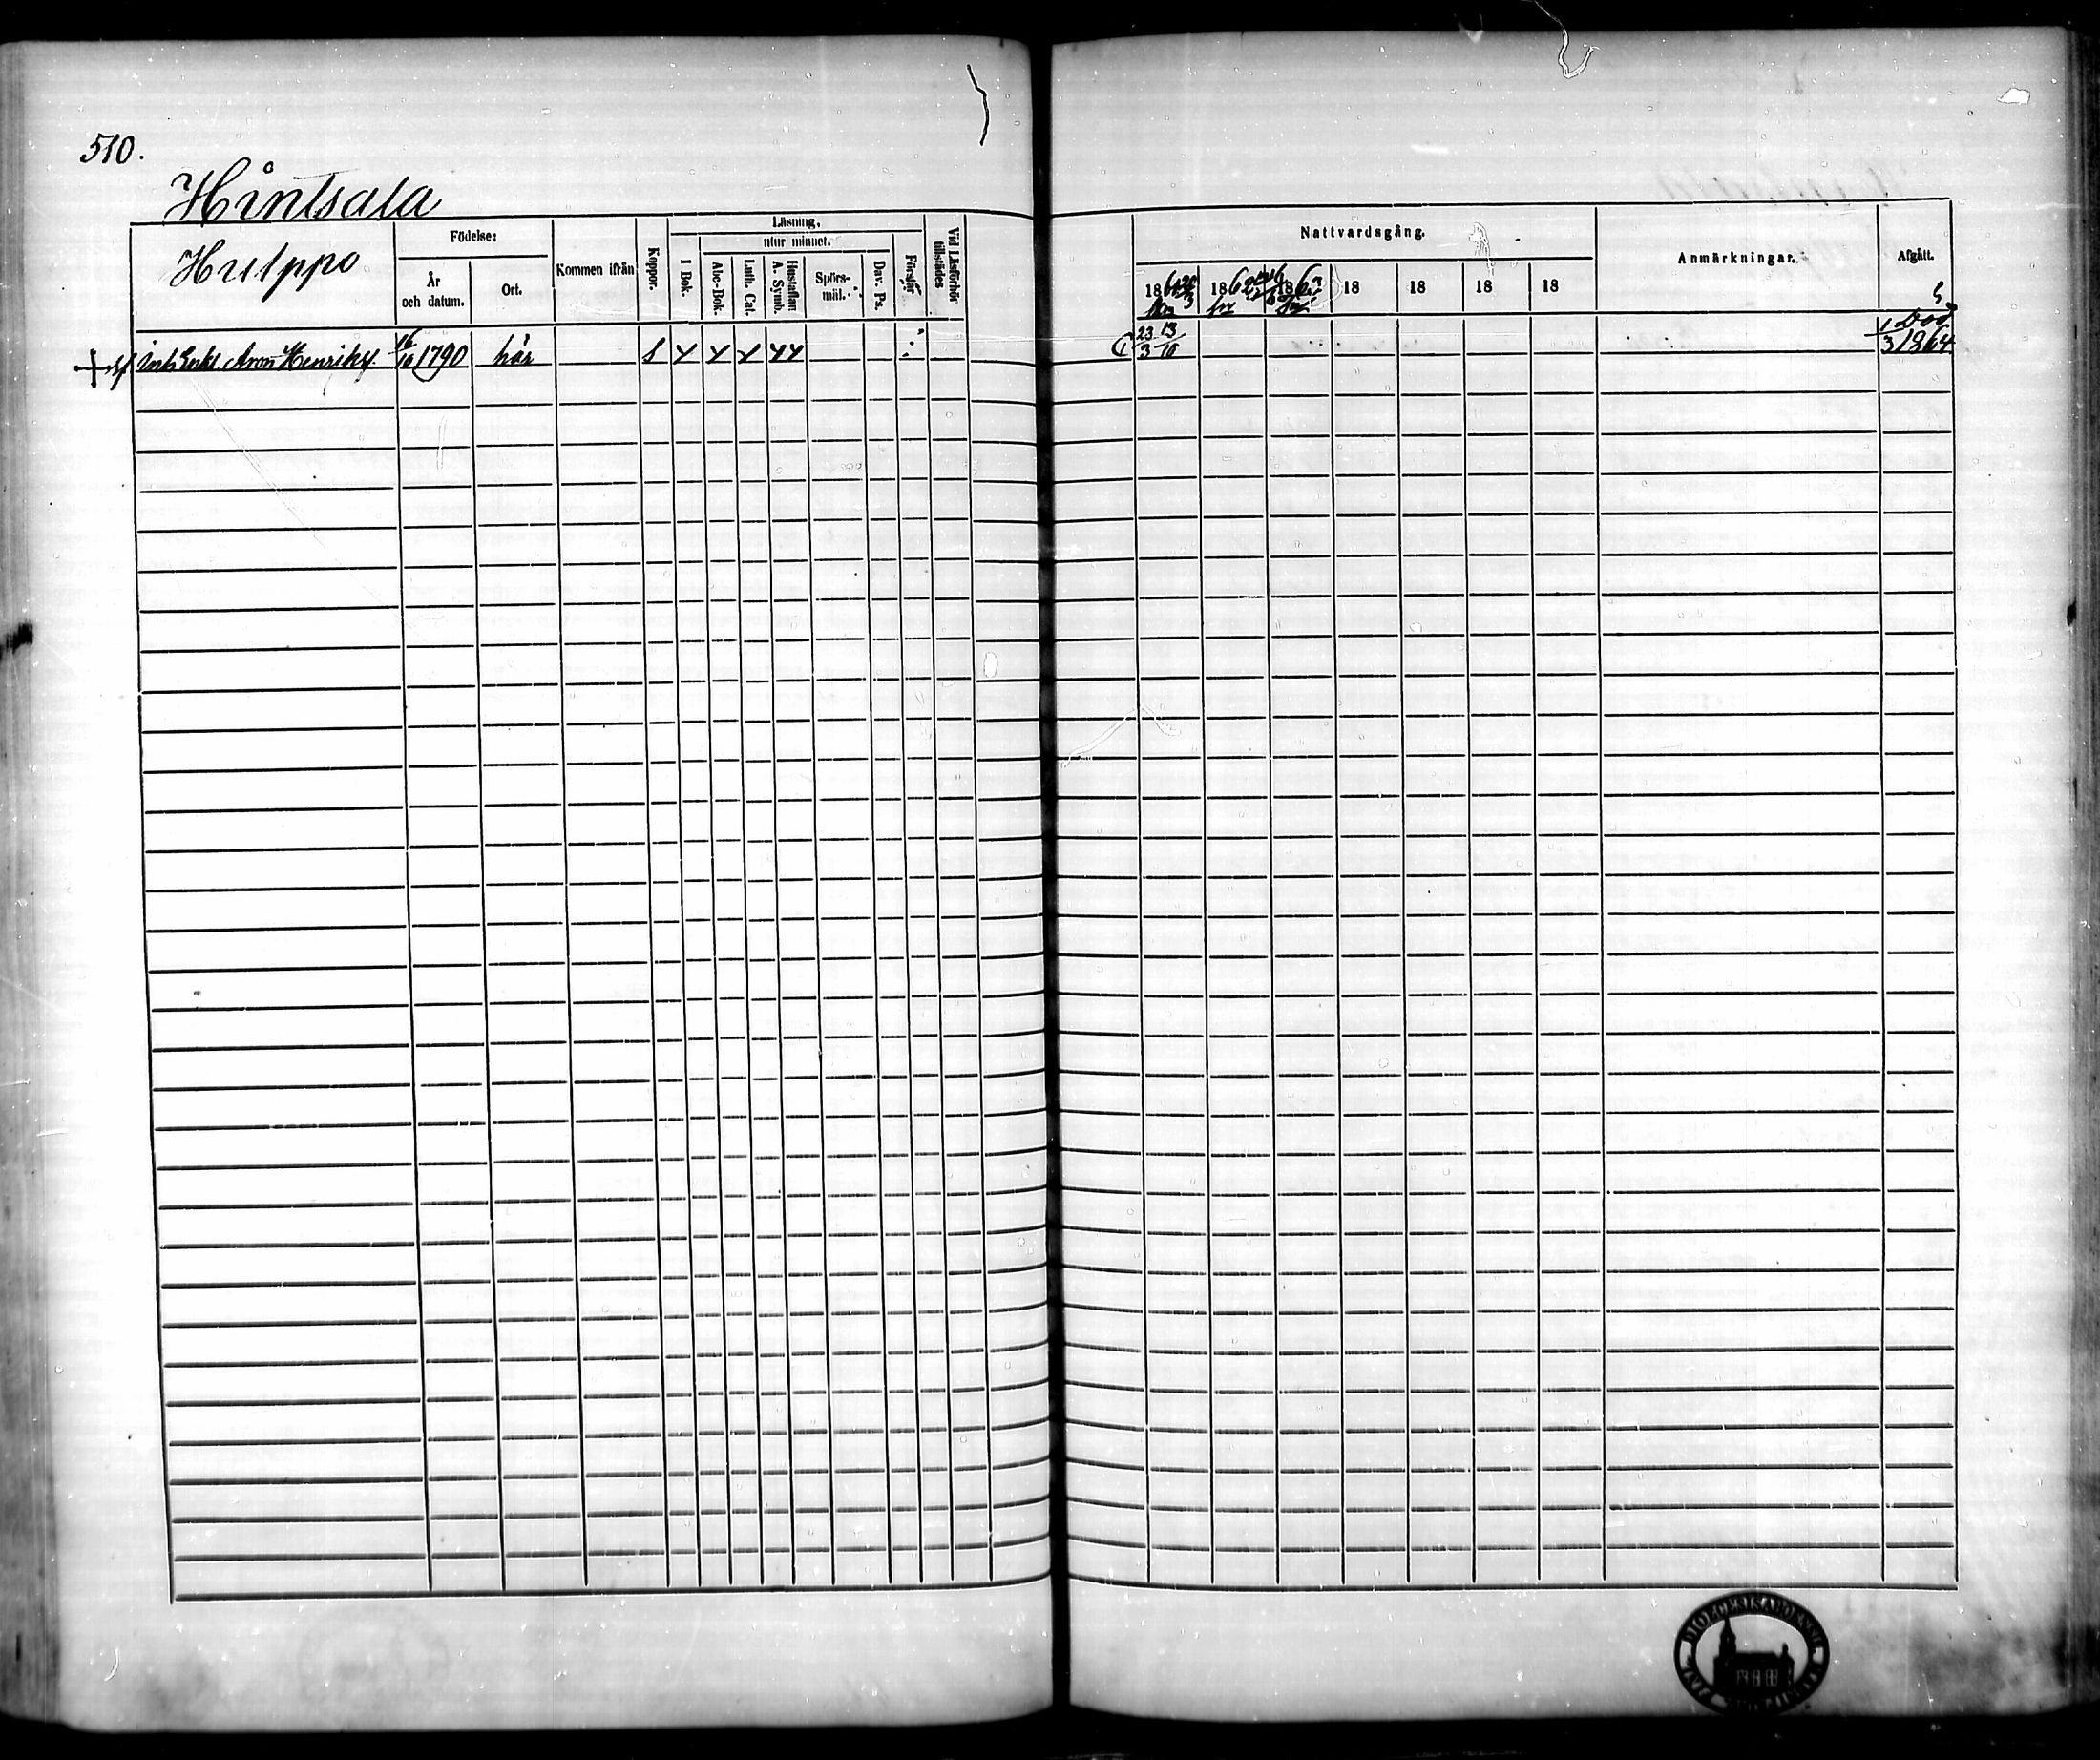 510.
Hintsala
Huippo
Födelse:
År
och datum.
Ort.
Kommen ifrån
Koppor.
Läsning,
utur minnet.
I Bok.
Abc-Bok.
Luth. Cat.
Hustaflan
A. Symb.
Spörs-
mål.
Dav. Ps.
Förstår.
Vid Läsförhör
tillstädes.
Inh Enkl. Aron Henriks. 16/10 1790 här
Nattvardsgång.
18 18 18 18 18 18 18
Anmärkningar.
Afgått.
23/3 13/10
Död
1/3 1864